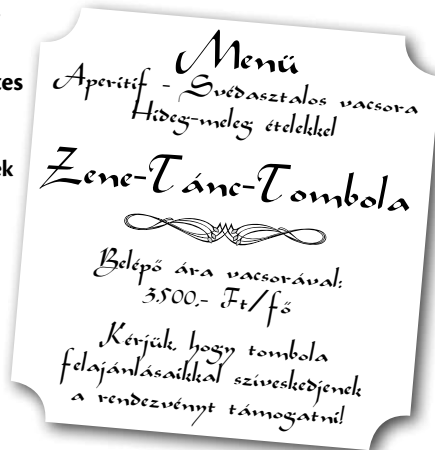 Menü
Aperitif - Svédasztalos vacsora
Hideg-meleg ételekkel
Zene-Tánc-Tombola
Belépő ára vacsorával:
3.500,- Ft/fő
Kérjük, hogy tombola
felajánlásaikkal szíveskedjenek
a rendezvényt támogatni!